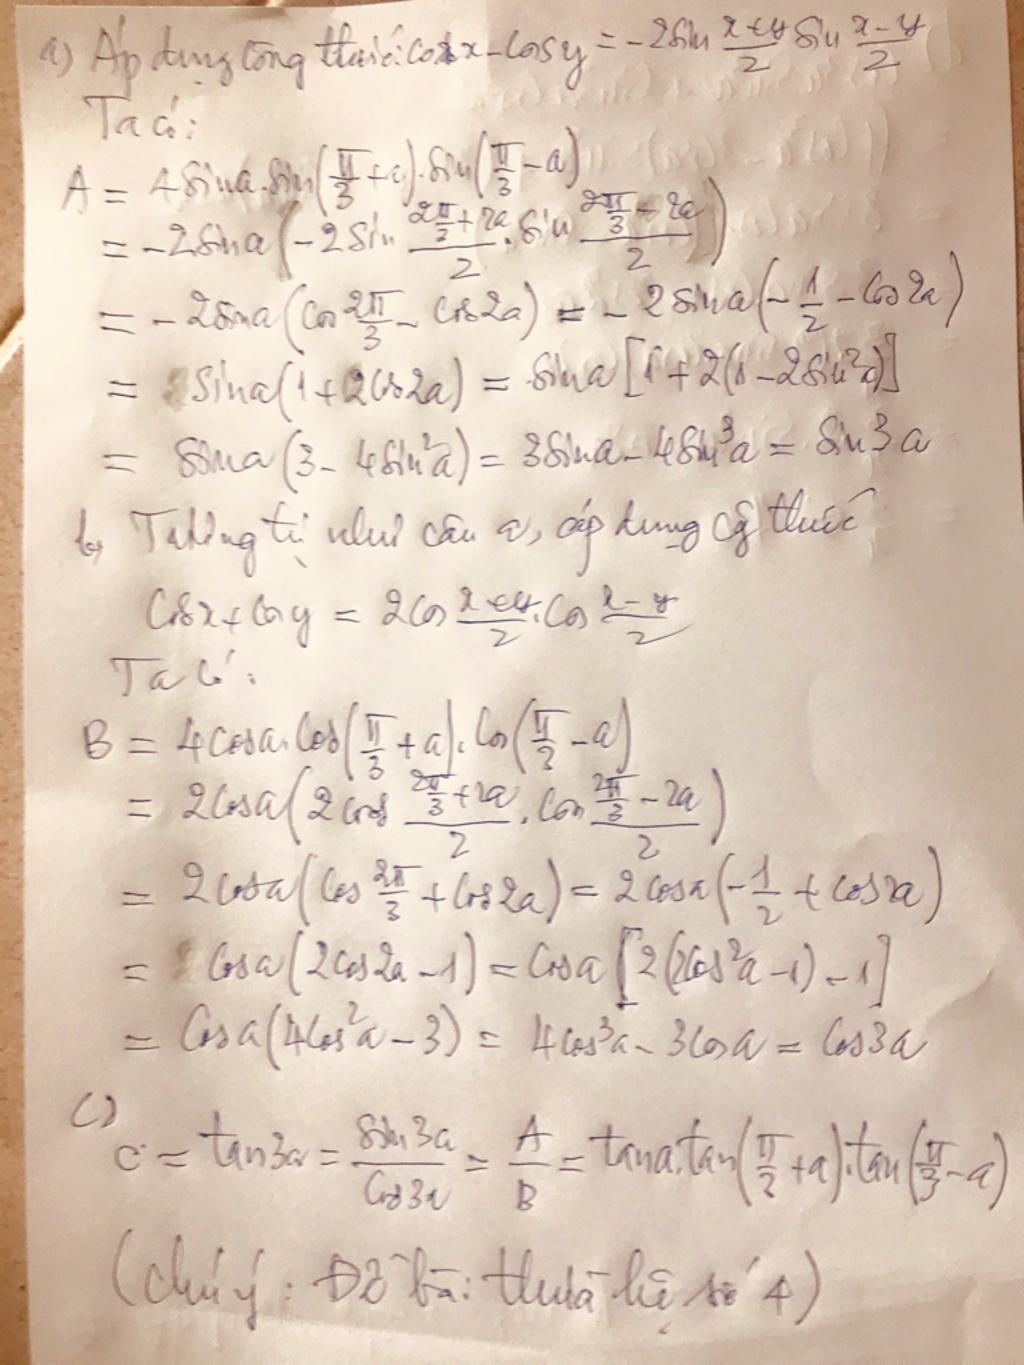 a) Áp dụng công thức: cosx - cosy = -2sin (x+y)/2 sin (x-y)/2
Ta có:
A = 4sina.sin(π/3 + a).sin(π/3 - a)
= -2sina(-2sin (2π/3 + 2a)/2 . sin (2π/3 - 2a)/2)
= -2sina(cos 2π/3 - cos2a) = -2sina(-1/2 - cos2a)
= sina(1+2cos2a) = sina[1+2(1-2sin²a)]
= sina(3-4sin²a) = 3sina - 4sin³a = sin3a
b, Tương tự như câu a, áp dụng cg thức
cosx + cosy = 2cos (x+y)/2 . cos (x-y)/2
Ta có:
B = 4cosa.cos(π/3 + a).cos(π/3 - a)
= 2cosa(2cos (2π/3 + 2a)/2 . cos (2π/3 - 2a)/2)
= 2cosa(cos 2π/3 + cos2a) = 2cosa(-1/2 + cos2a)
= cosa(2cos2a - 1) = cosa[2(2cos²a - 1) - 1]
= cosa(4cos²a - 3) = 4cos³a - 3cosa = cos3a
c)
C = tan3a = sin3a/cos3a = A/B = tana.tan(π/3 + a).tan(π/3 - a)
(chú ý: Đề bài thừa hệ số 4)